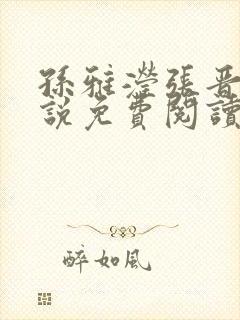 孫雅瀅張晉
說免費閱讀
醉如風